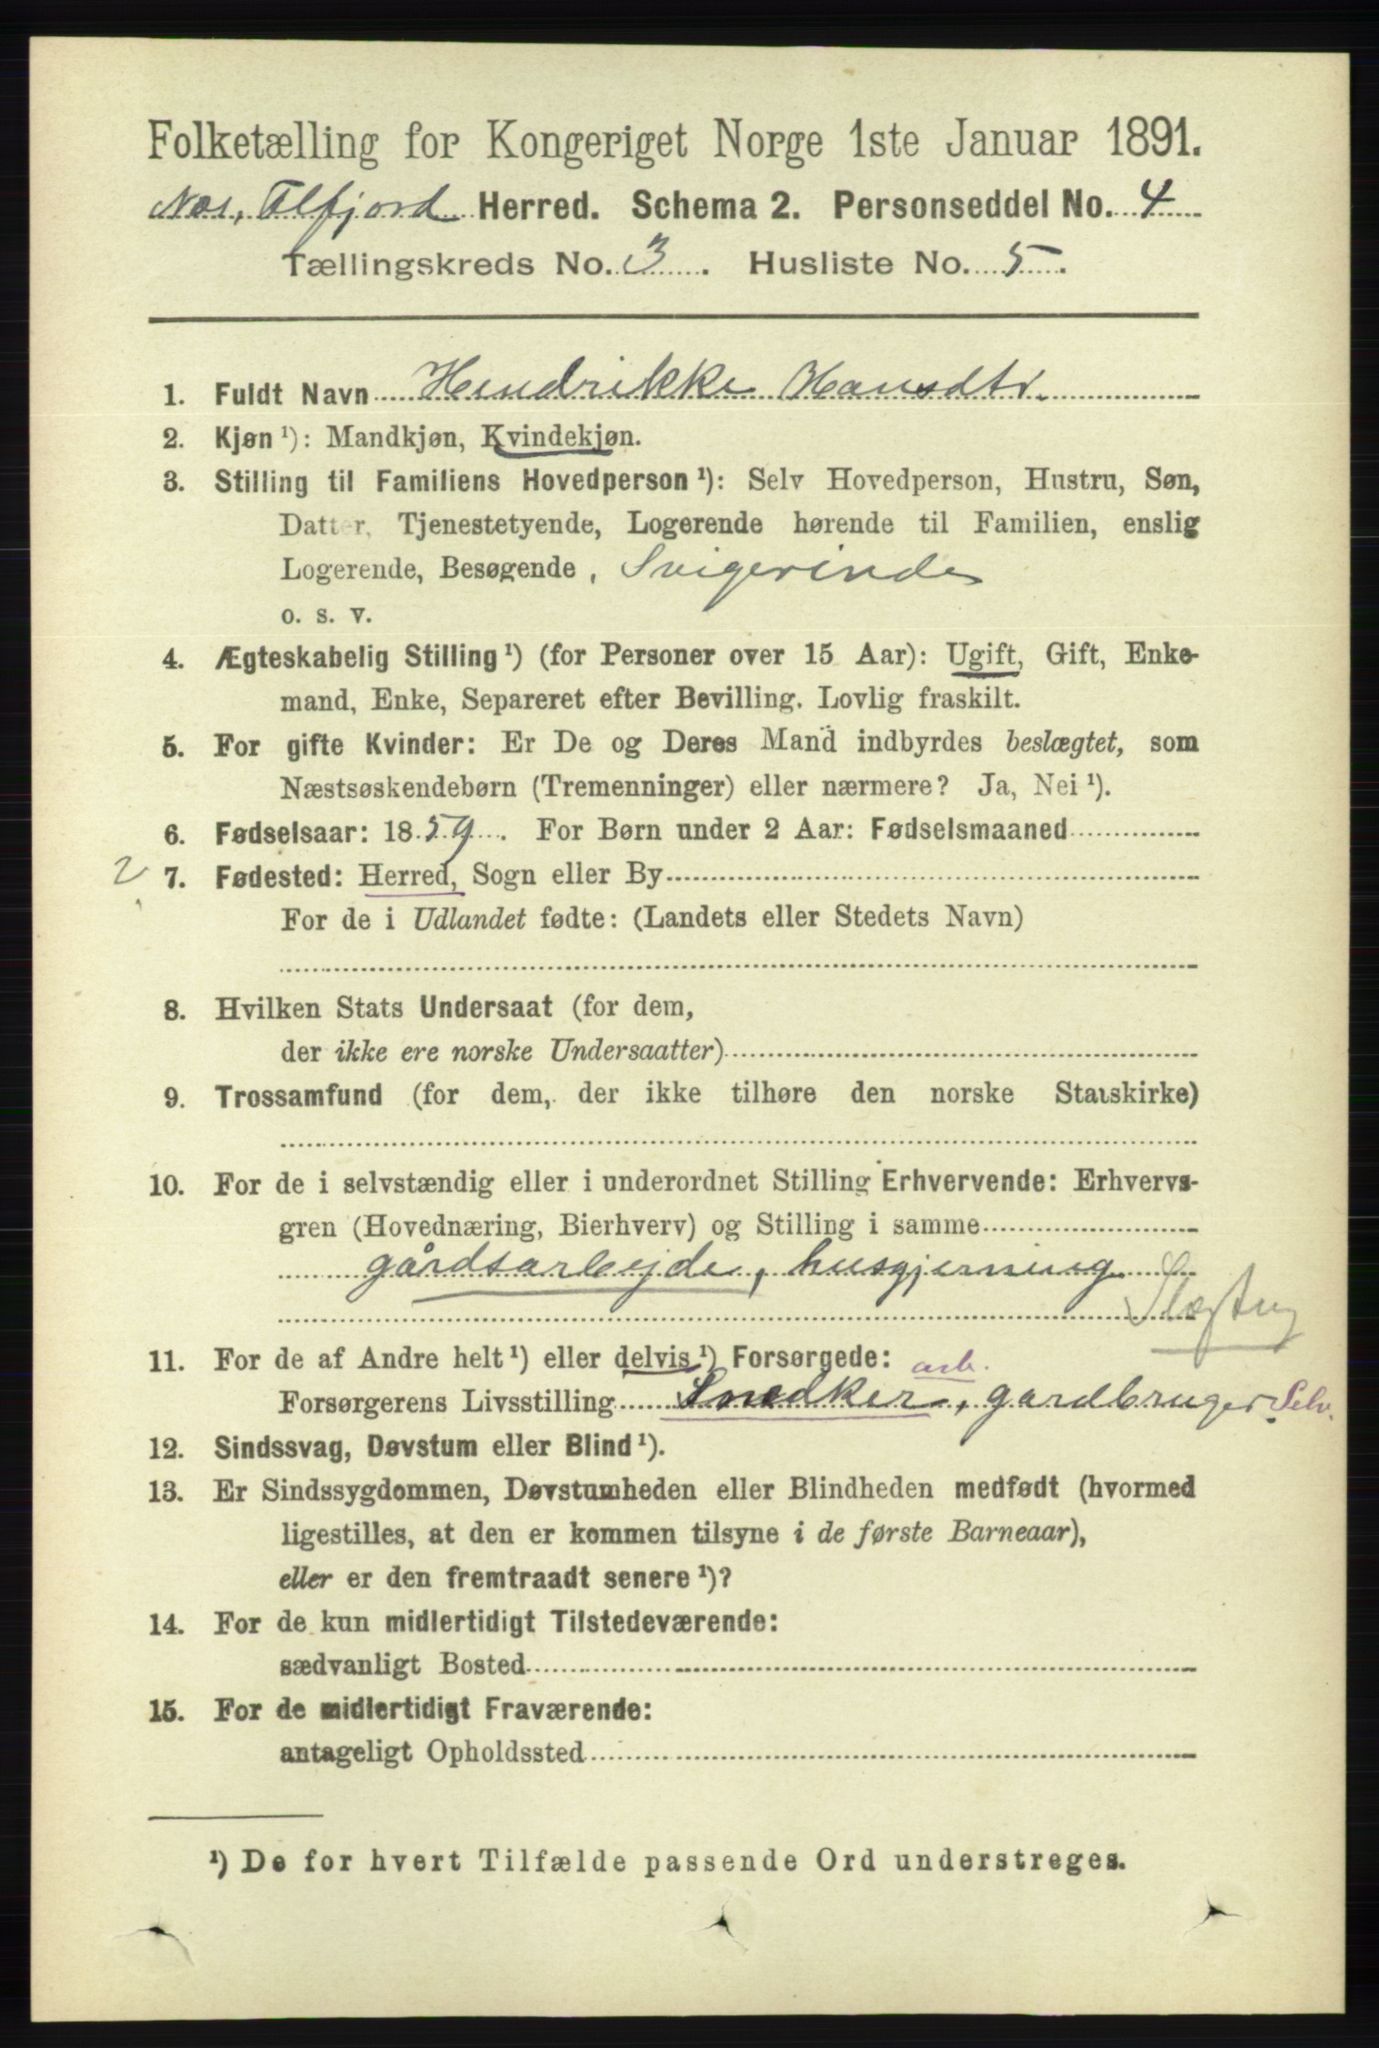 Folketælling for Kongeriget Norge 1ste Januar 1891.
Næs, Elfjord Herred. Schema 2. Personseddel No. 4
Tællingskreds No. 3. Husliste No. 5.
1. Fuldt Navn Hendrikke Hansdtr.
2. Kjøn ¹): Mandkjøn, Kvindekjøn.
3. Stilling til Familiens Hovedperson ¹): Selv Hovedperson, Hustru, Søn,
Datter, Tjenestetyende, Logerende hørende til Familien, enslig
Logerende, Besøgende, Svigerinde
o. s. v.
4. Ægteskabelig Stilling ¹) (for Personer over 15 Aar): Ugift, Gift, Enke-
mand, Enke, Separeret efter Bevilling. Lovlig fraskilt.
5. For gifte Kvinder: Er De og Deres Mand indbyrdes beslægtet, som
Næstsøskendebørn (Tremenninger) eller nærmere? Ja, Nei ¹).
6. Fødselsaar: 1859. For Børn under 2 Aar: Fødselsmaaned
2 7. Fødested: Herred, Sogn eller By
For de i Udlandet fødte: (Landets eller Stedets Navn)
8. Hvilken Stats Undersaat (for dem,
der ikke ere norske Undersaatter)
9. Trossamfund (for dem, der ikke tilhøre den norske Statskirke)
10. For de i selvstændig eller i underordnet Stilling Erhvervende: Erhvervs-
gren (Hovednæring, Bierhverv) og Stilling i samme
gårdsarbejde, husgjerning
11. For de af Andre helt ¹) eller delvis ¹) Forsørgede: arb.
Forsørgerens Livsstilling Snedker, gardbruger Selv.
12. Sindssvag, Døvstum eller Blind ¹).
13. Er Sindssygdommen, Døvstumheden eller Blindheden medfødt (hvormed
ligestilles, at den er kommen tilsyne i de første Barneaar),
eller er den fremtraadt senere ¹)?
14. For de kun midlertidigt Tilstedeværende:
sædvanligt Bosted
15. For de midlertidigt Fraværende:
antageligt Opholdssted
¹) De for hvert Tilfælde passende Ord understreges.